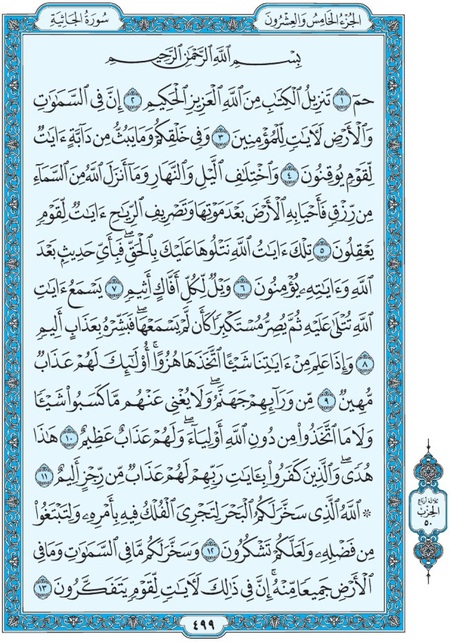 الجزء الخامس والعشرون
سورة الجاثية
بِسْمِ اللَّهِ الرَّحْمَٰنِ الرَّحِيمِ
حمٓ ١ تَنزِيلُ ٱلْكِتَٰبِ مِنَ ٱللَّهِ ٱلْعَزِيزِ ٱلْحَكِيمِ ٢ إِنَّ فِى ٱلسَّمَٰوَٰتِ
وَٱلْأَرْضِ لَءَايَٰتٍ لِّلْمُؤْمِنِينَ ٣ وَفِى خَلْقِكُمْ وَمَا يَبُثُّ مِن دَآبَّةٍ ءَايَٰتٌ
لِّقَوْمٍ يُوقِنُونَ ٤ وَٱخْتِلَٰفِ ٱلَّيْلِ وَٱلنَّهَارِ وَمَآ أَنزَلَ ٱللَّهُ مِنَ ٱلسَّمَآءِ
مِن رِّزْقٍ فَأَحْيَا بِهِ ٱلْأَرْضَ بَعْدَ مَوْتِهَا وَتَصْرِيفِ ٱلرِّيَٰحِ ءَايَٰتٌ لِّقَوْمٍ
يَعْقِلُونَ ٥ تِلْكَ ءَايَٰتُ ٱللَّهِ نَتْلُوهَا عَلَيْكَ بِٱلْحَقِّ ۖ فَبِأَىِّ حَدِيثٍۭ بَعْدَ
ٱللَّهِ وَءَايَٰتِهِۦ يُؤْمِنُونَ ٦ وَيْلٌ لِّكُلِّ أَفَّاكٍ أَثِيمٍ ٧ يَسْمَعُ ءَايَٰتِ
ٱللَّهِ تُتْلَىٰ عَلَيْهِ ثُمَّ يُصِرُّ مُسْتَكْبِرًا كَأَن لَّمْ يَسْمَعْهَا ۖ فَبَشِّرْهُ بِعَذَابٍ أَلِيمٍ
٨ وَإِذَا عَلِمَ مِنْ ءَايَٰتِنَا شَيْـًٔا ٱتَّخَذَهَا هُزُوًا ۚ أُو۟لَٰٓئِكَ لَهُمْ عَذَابٌ
مُّهِينٌ ٩ مِّن وَرَآئِهِمْ جَهَنَّمُ ۖ وَلَا يُغْنِى عَنْهُم مَّا كَسَبُوا۟ شَيْـًٔا
وَلَا مَا ٱتَّخَذُوا۟ مِن دُونِ ٱللَّهِ أَوْلِيَآءَ ۖ وَلَهُمْ عَذَابٌ عَظِيمٌ ١٠ هَٰذَا
هُدًى ۖ وَٱلَّذِينَ كَفَرُوا۟ بِـَٔايَٰتِ رَبِّهِمْ لَهُمْ عَذَابٌ مِّن رِّجْزٍ أَلِيمٌ ١١
۞ ٱللَّهُ ٱلَّذِى سَخَّرَ لَكُمُ ٱلْبَحْرَ لِتَجْرِىَ ٱلْفُلْكُ فِيهِ بِأَمْرِهِۦ وَلِتَبْتَغُوا۟
مِن فَضْلِهِۦ وَلَعَلَّكُمْ تَشْكُرُونَ ١٢ وَسَخَّرَ لَكُم مَّا فِى ٱلسَّمَٰوَٰتِ وَمَا فِى
ٱلْأَرْضِ جَمِيعًا مِّنْهُ ۚ إِنَّ فِى ذَٰلِكَ لَءَايَٰتٍ لِّقَوْمٍ يَتَفَكَّرُونَ ١٣
ثلاثة أرباع
الحزب
٥٠
٤٩٩